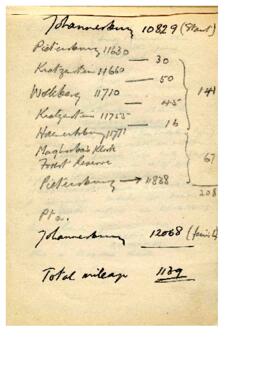 Johannesburg 10829 (Start)
Pietersburg 11630
30
Kratzenstein 11660
50
Wolkberg 11710
45
Kratzenstein 11755
16
Haenertsburg 11771
141
Magoeba's Kloof
Forest Reserve
67
Pietersburg → 11838
208
Pta.
Johannesburg 12068 (finish)
Total mileage 1139